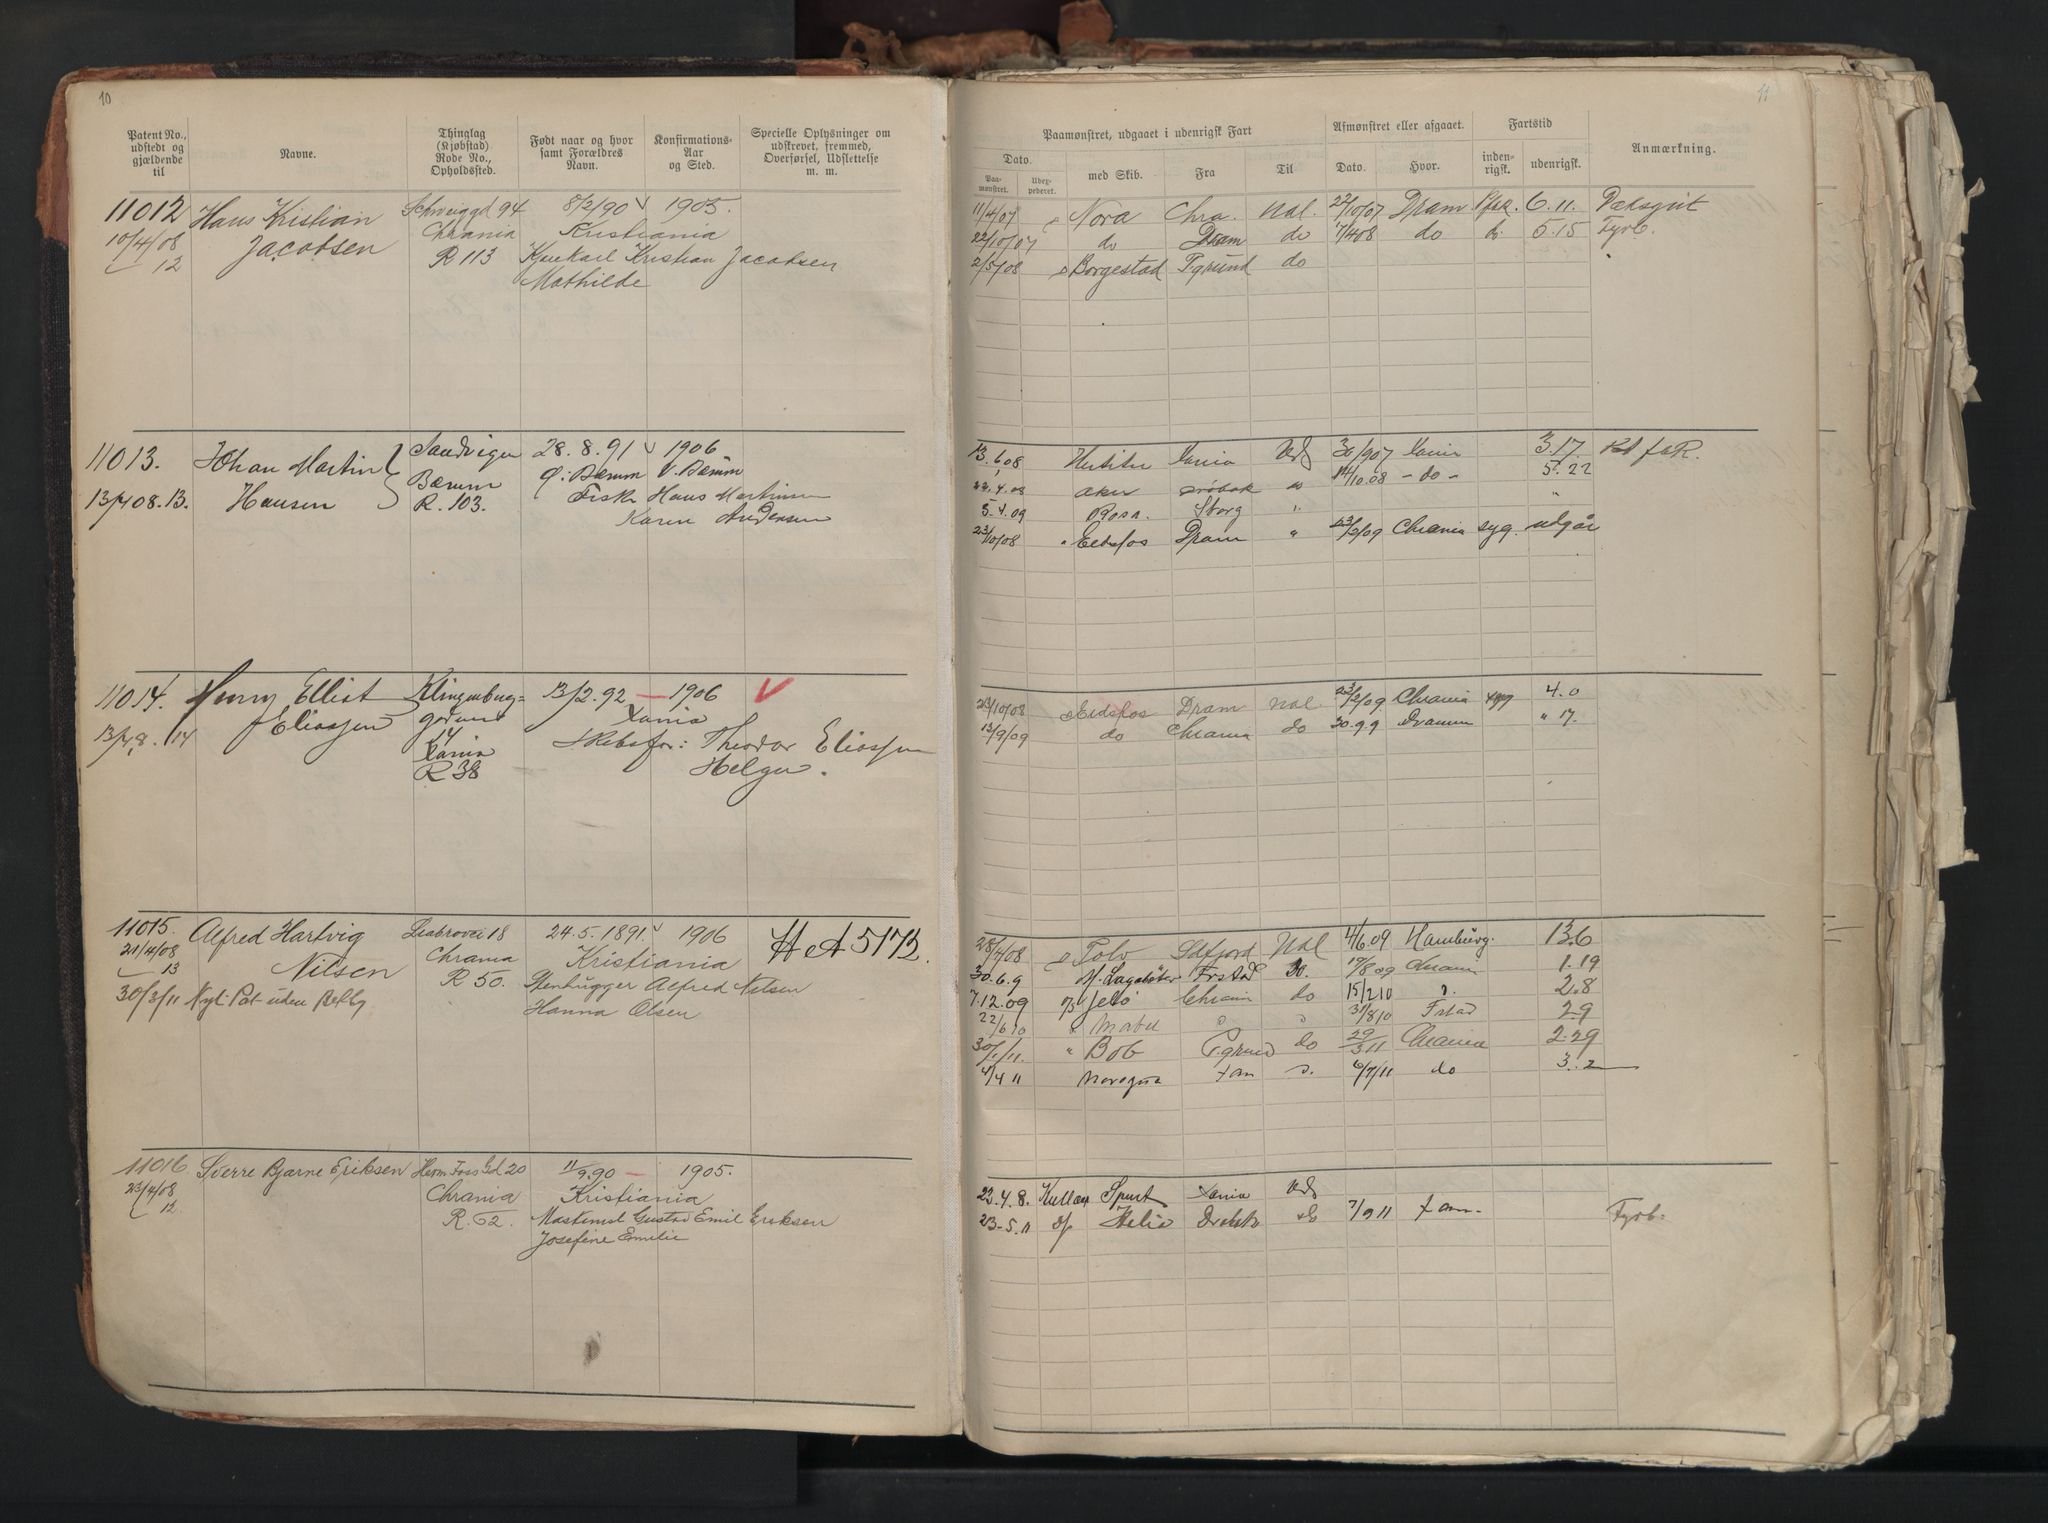 10
Patent No., udstedt og gjældende til
Navne.
Thinglag (Kjøbstad) Rode No., Opholdssted.
Født naar og hvor samt Forældres Navn.
Konfirmations-Aar og Sted.
Specielle Oplysninger om udskrevet, fremmed, Overførsel, Udslettelse m. m.
11012 Hans Kristian Schweiggd 94 8/2/90 1905.
10/4/08 Jacobsen Chrania Kristiania
12 R 113 Kristian Jacobsen
Mathilde
11013. Johan Martin Sandvigen 28.8.91 1906
13/4 08. 13. Hansen Bærum Bærum V. Bærum
R. 103. Fisk Hans Martinsen
Karen Andersen
11014. Henry Elliot Klingenberg- 13/2.92 1906
13/4 8. 14 Eliassen gaden Xania
14 Rebsl Theodor Eliassen
Xania Helga.
R 38
11015. Alfred Hartvig Ljabrovei 18 24.5.1891. 1906 H A 5173.
21/4/08 Nilsen Chrania Kristiania
13 R 50. Stenhugger Alfred Nilsen
30/3/11 Nyt Pat uden Betlg Hanna Olsen
11016 Sverre Bjarne Eriksen Herm Foss Gd 20 11/9.90 1905.
23/4/08 Chrania Kristiania
12. R. 62. Maskinist Gustav Emil Eriksen
Josefine Emilie
11
Paamønstret, udgaaet i udenrigsk Fart
Afmønstret eller afgaaet.
Fartstid
Anmærkning.
Dato.
Paa-mønstret.
Udex-pederet.
med Skib.
Fra
Til
Dato.
Hvor.
inden-rigsk.
udenrigsk.
11/4/07 Nora Chra. Ual. 22/10/07 Dram 6.11. Dæksgut
22/10/07 do Dram do 7/4 08 do do 5.15 Fyrb.
2/5/08 Borgestad Pgrund do
13.6 08 Xania Uds 30/9 07 Xania 3.17.
22.4.08 Aker Drøbak do 14/10.08 - do - 5.22
5.4.09 Rosa. Sborg "
23/10/08 " Eidsfos Dram " 23/2/09 Chrania syg. udgår
23/10/08 Eidsfos Dram Ual. 23/2/09 Chrania syg 4.0
13/9/09 do Chrania do 30.9 9 Dramm " 17.
28/4/08 Polv Sdfjord Ual 4/6.09 Hamburg. 13.6
30.6.9 M. Lagabøter Frstad Do. 19/8 09 Chrania 1.19
7.12.09 Jelø Chrania do 15/2 10 2.8
22/6 10 31/8 10 Fstad 2.9
30/1/11. " Bob Pgrund do 29/3 11 Chrania 2.29
4/4 11 Xan 6/7/11 do 3.2
22.4.8. Kullax Spurt Xania Uds
23-5.11 D/s Helio Drøbak do 7/9 11 Xan- Fyrb.